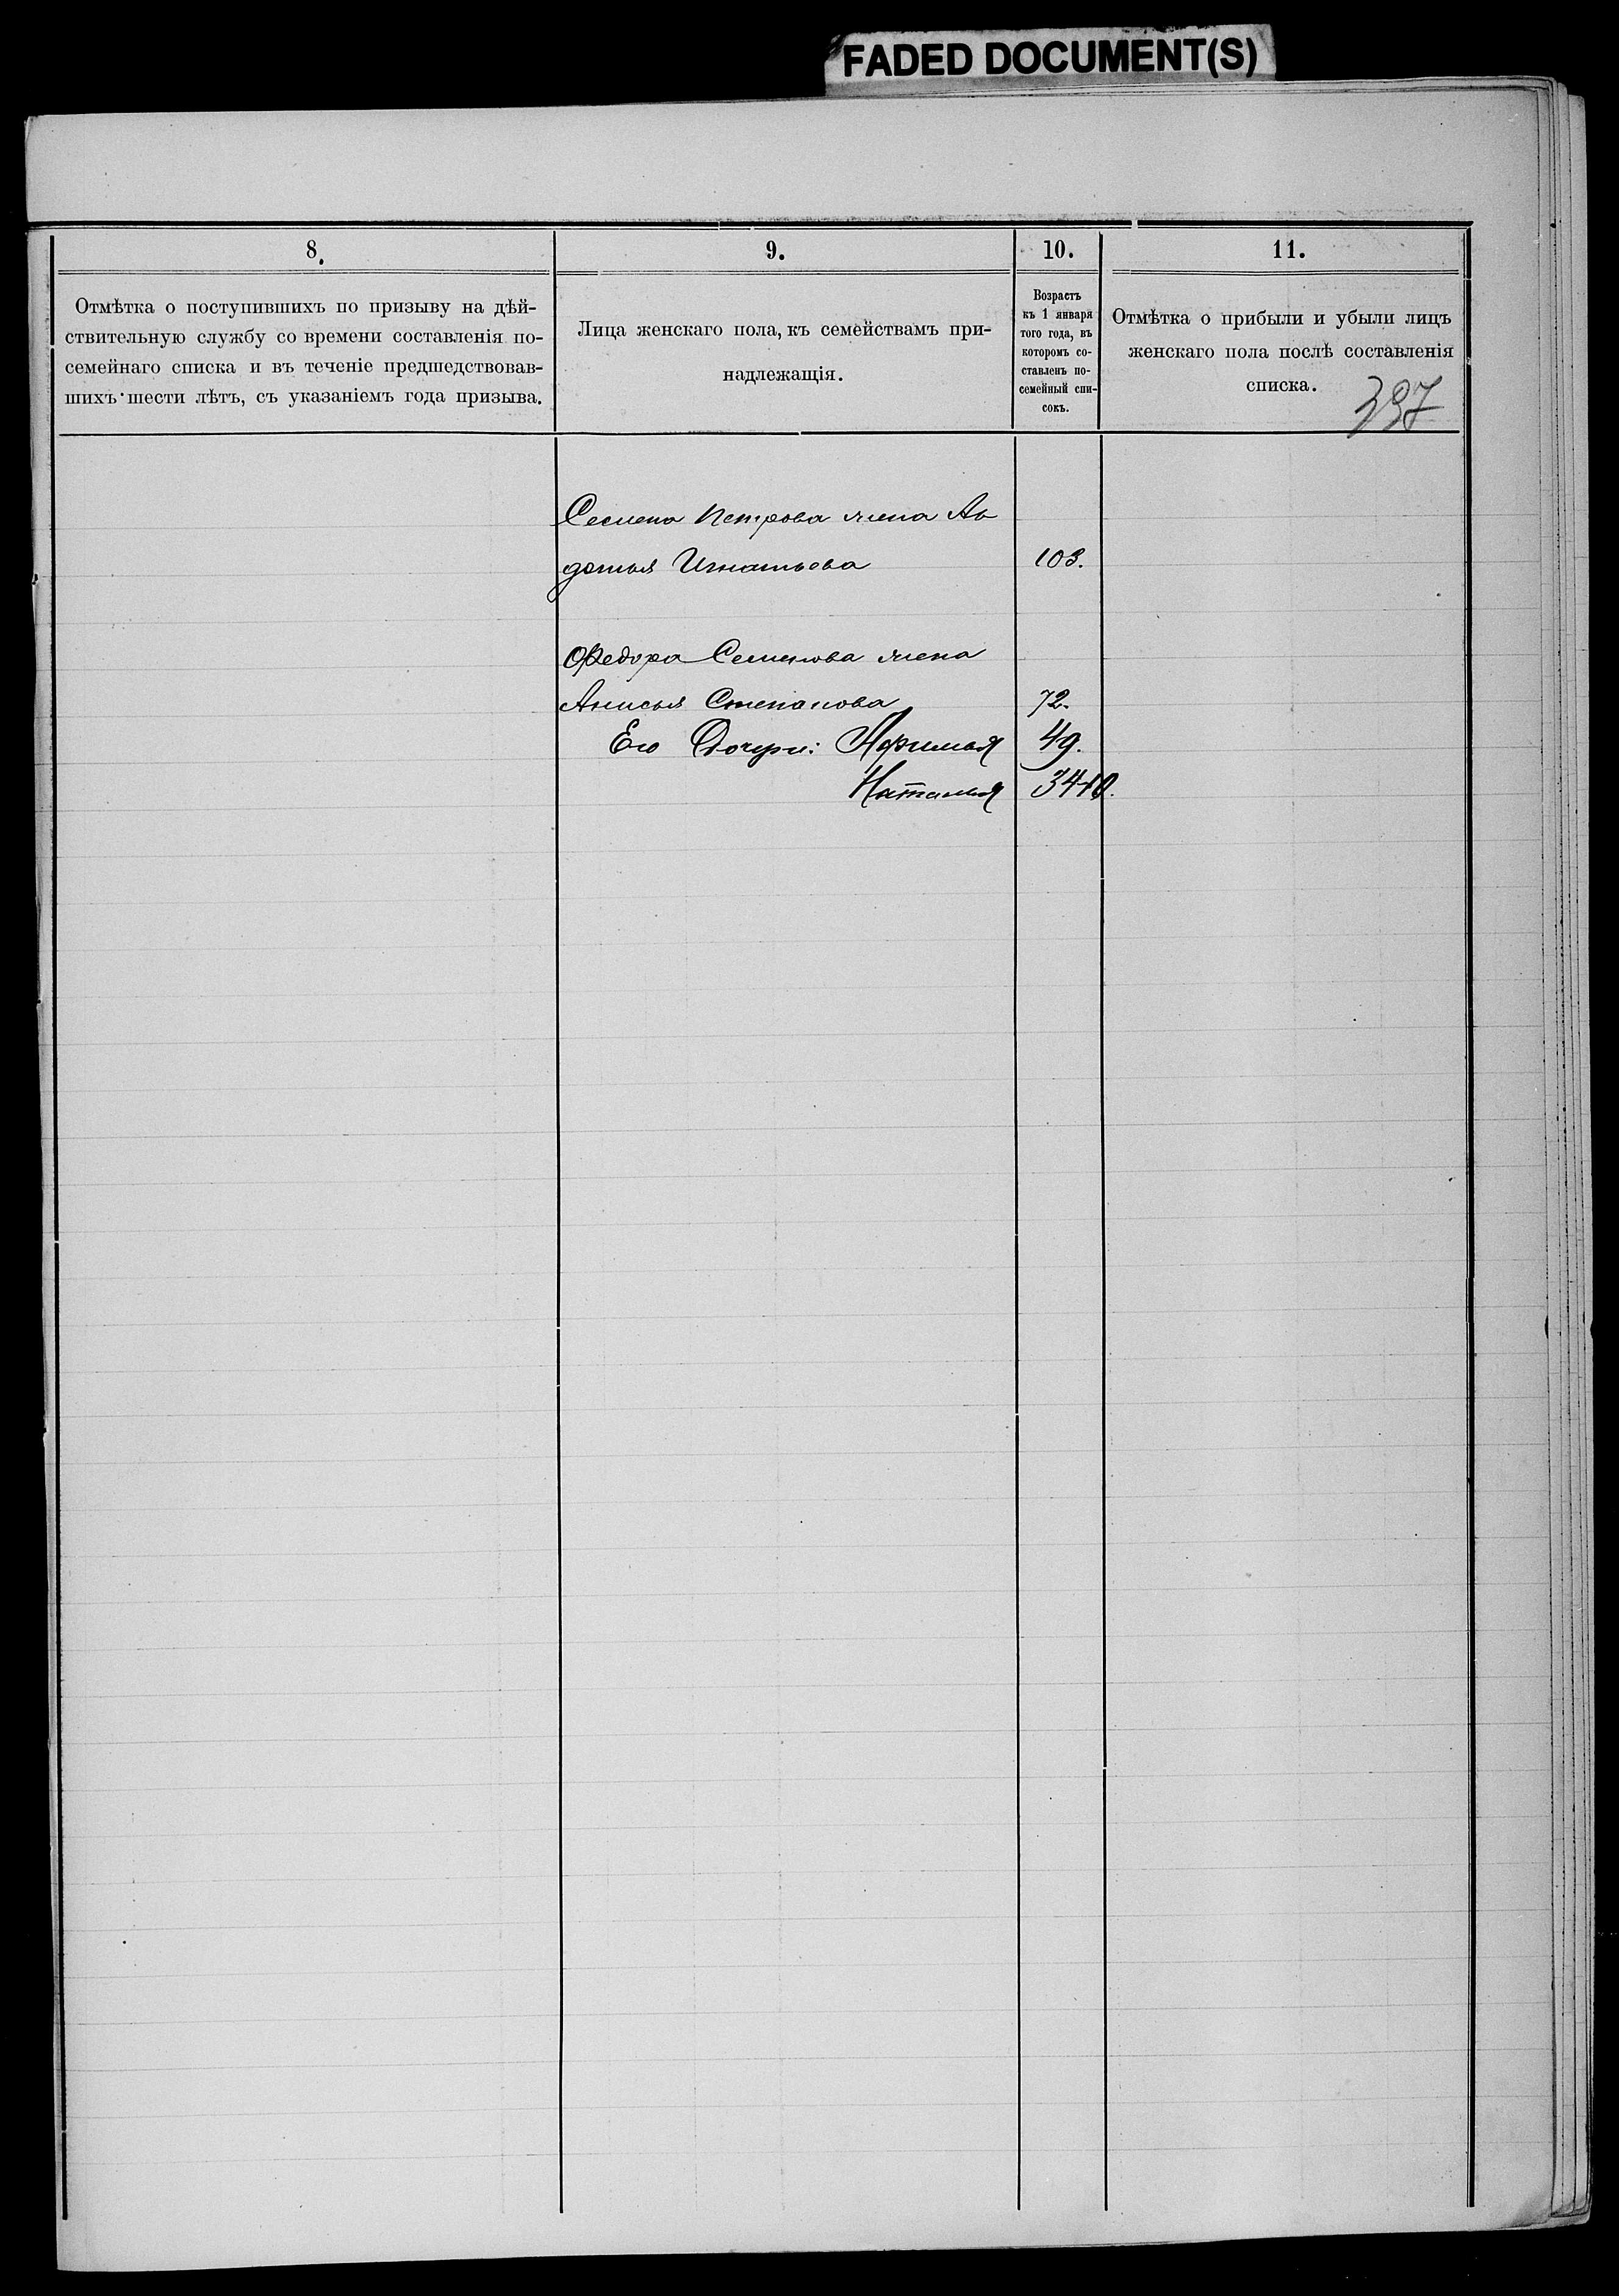 FADED DOCUMENT(S)
8.
Отмѣтка о поступившихъ по призыву на дѣй-
ствительную службу со времени составленія по-
семейнаго списка и въ теченіе предшедствовав-
шихъ шести лѣтъ, съ указаніемъ года призыва.
9.
Лица женскаго пола, къ семействамъ при-
надлежащія.
10.
Возрастъ
къ 1 января
того года, въ
которомъ со-
ставленъ по-
семейный спи-
сокъ.
11.
Отмѣтка о прибыли и убыли лицъ
женскаго пола послѣ составленія
списка.
397
Семена Петрова жена Ав
дотья Игнатьева 103.
Федора Семенова жена
Анисья Степанова 72.
Его Дочери: Афимья 49.
Наталья